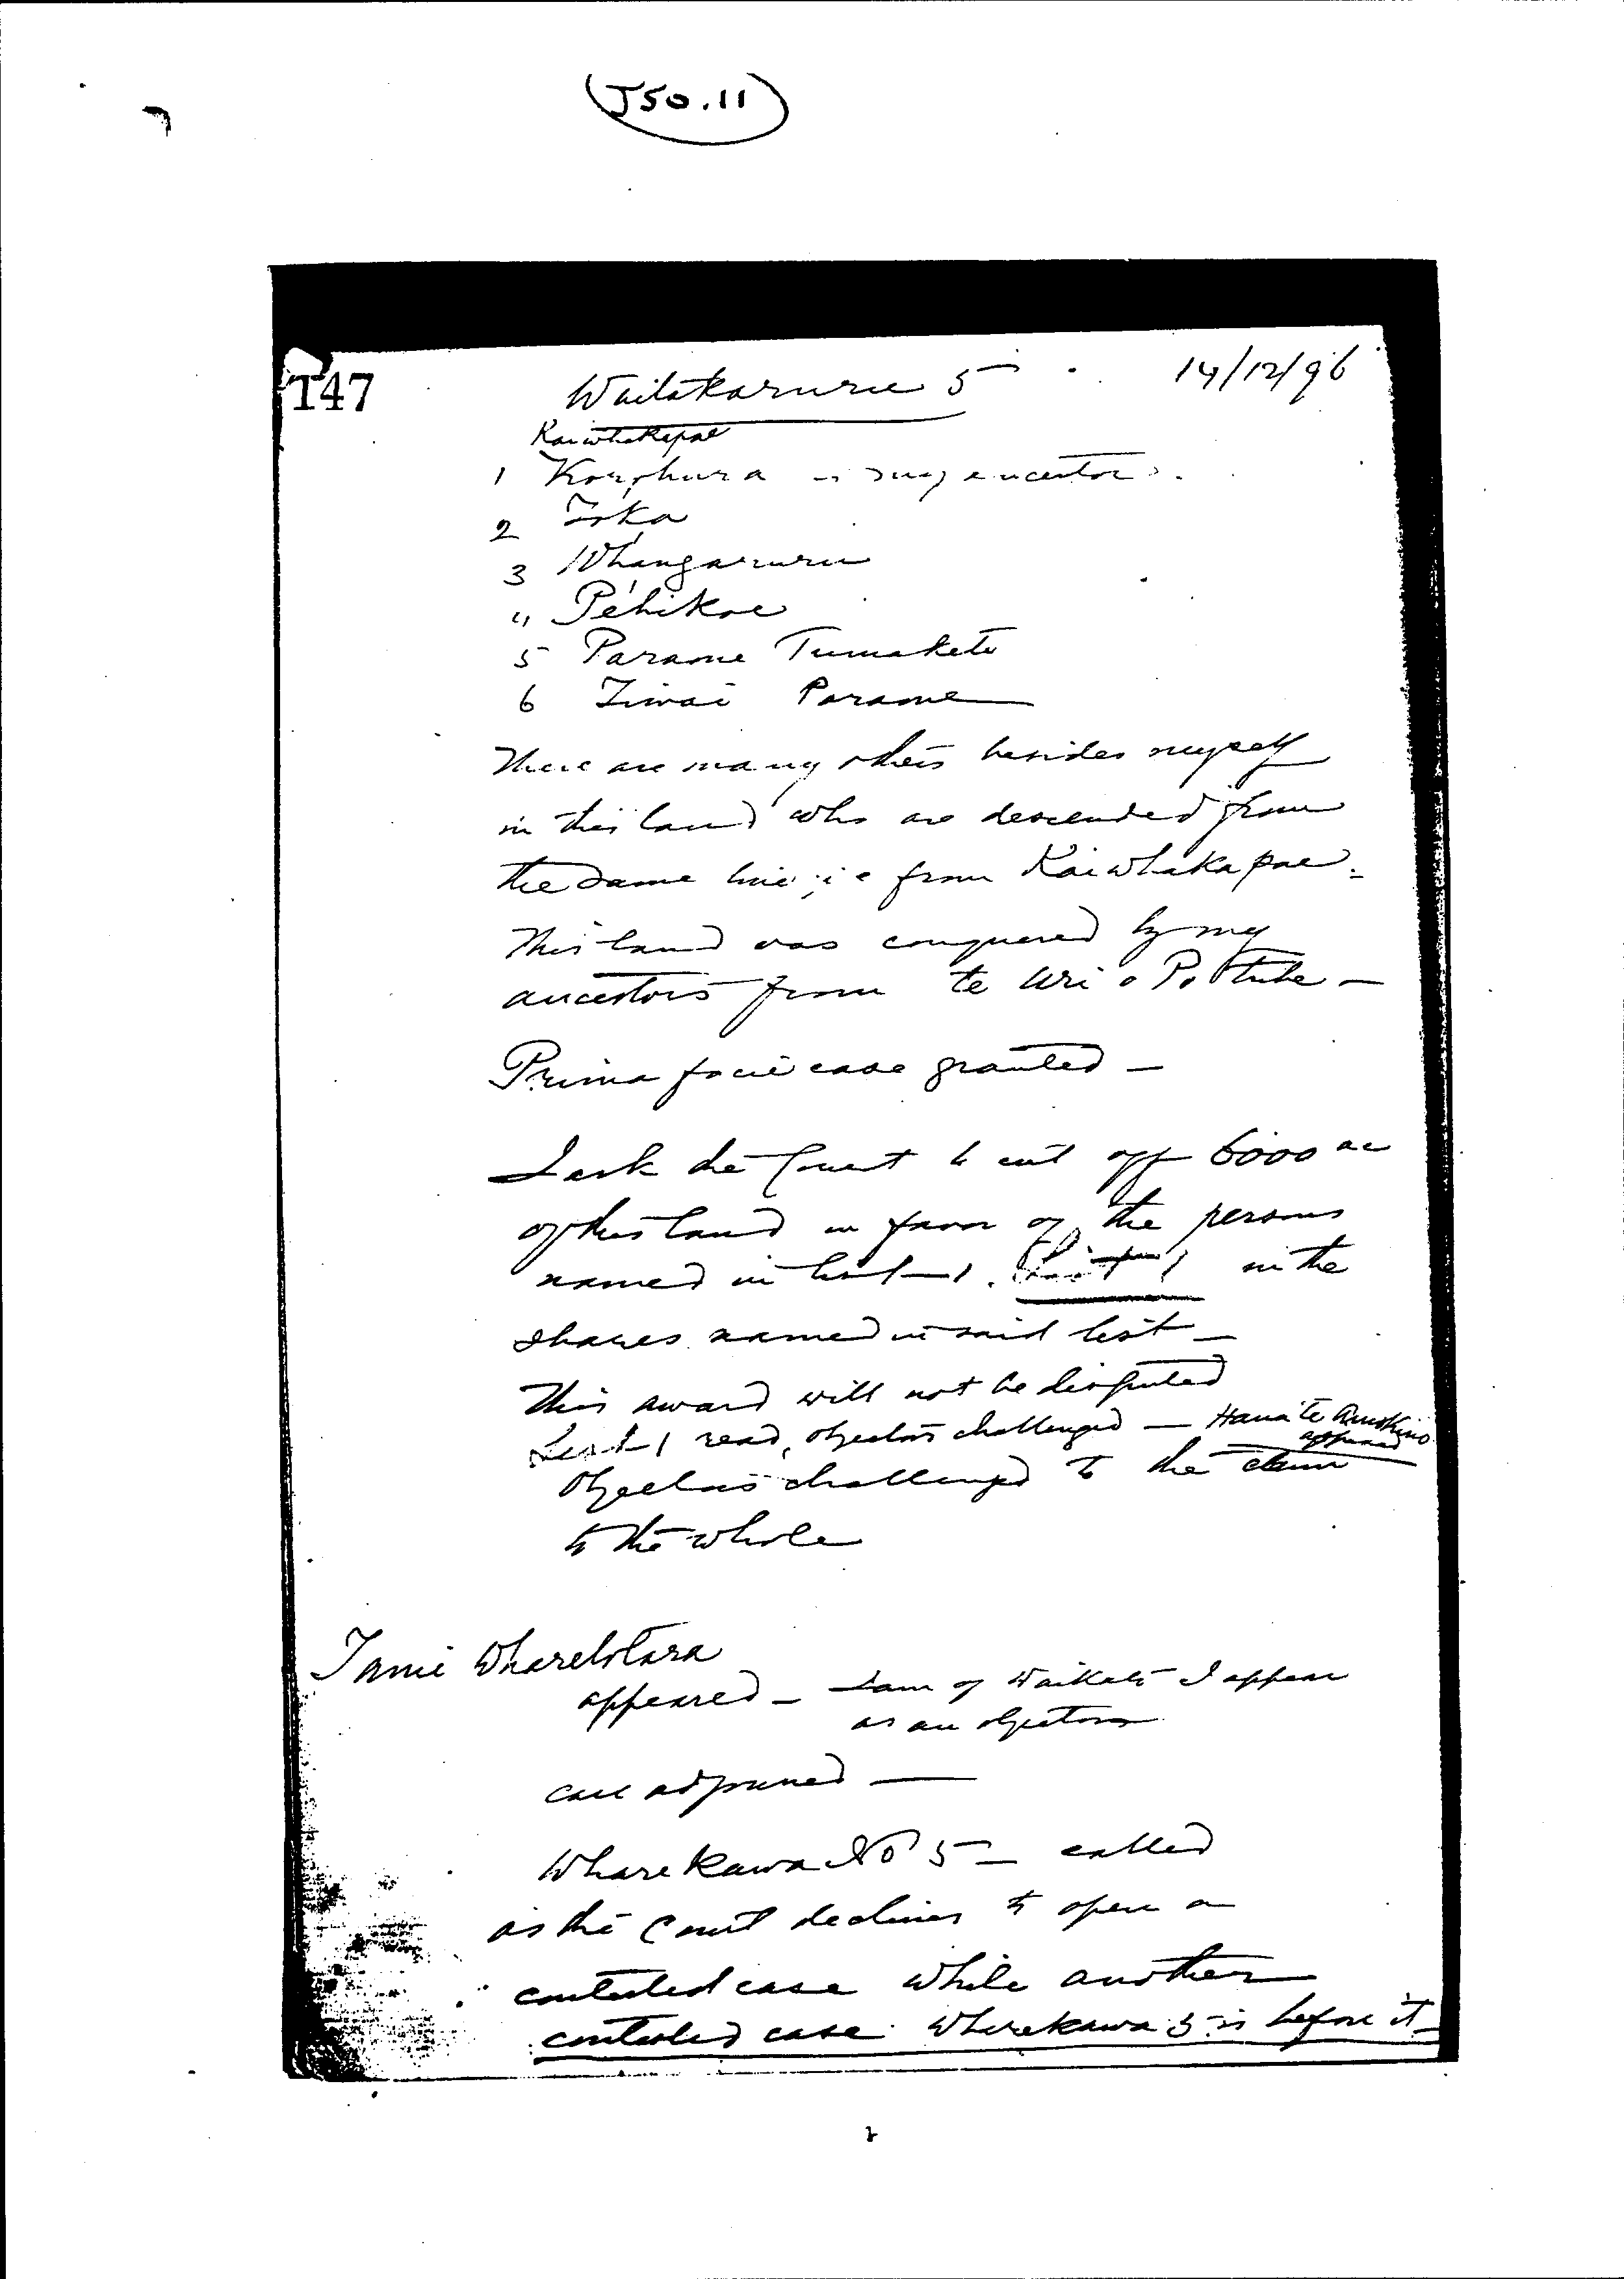 (J50.11)
147
Waitakaruru 5
14/12/96
Kaiwhakapae
1 Korohura my ancestor
2 Toka
3 Whangaruru
4 Pehikoe
5 Parame Tumakete
6 Tiwai Parame
There are many others besides myself
in this land who are descended from
the same line, i e from Kaiwhakapae.
This land was conquered by my
ancestors from te Uri o Po
Prima facie case granted —
I ask the Court to cut off 6000 ac
of this land in favor of the persons
named in list 1. List 1 in the
shares named in said list —
This award will not be disputed
List 1 read, objectors challenged — Hana te
appeared
Objectors challenged to the claim
to the whole
Tame Wharetotara
appeared — I am of Waikato I appear
as an objector
case adjourned —
Wharekawa No 5 — called
as the Court declines to open a
contested case while another
contested case Wharekawa 5 is before it —